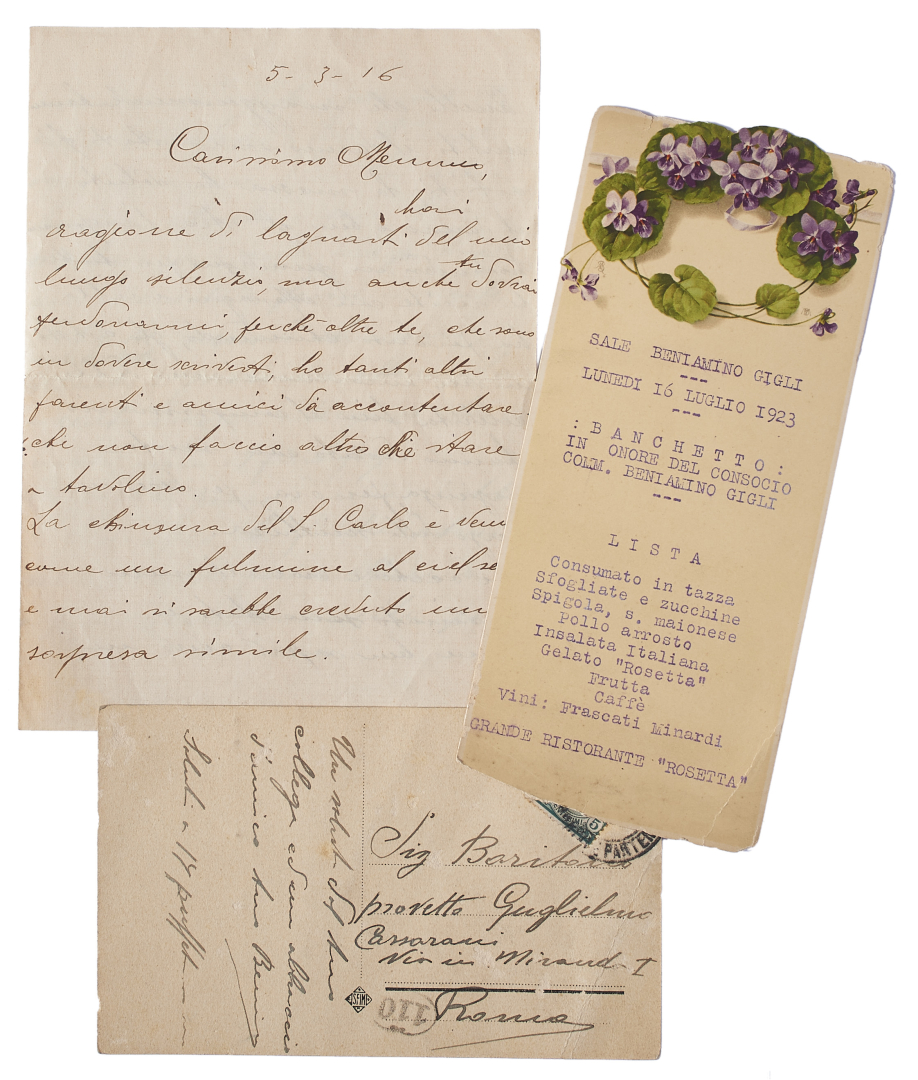 5-3-16
Carissimo Memmo,
hai
ragione di lagnarti del mio
lungo silenzio, ma anche tu dovrai
perdonarmi, perchè oltre te, che sono
in dovere scriverti, ho tanti altri
parenti e amici da accontentare
che non faccio altro che stare
a tavolino.
La chiusura del S. Carlo è
come un fulmine al ciel
e mai si sarebbe creduto
sorpresa simile.
SALE BENIAMINO GIGLI
---
LUNEDI 16 LUGLIO 1923
---
: B A N C H E T T O :
IN ONORE DEL CONSOCIO
COMM. BENIAMINO GIGLI
---
L I S T A
Consumato in tazza
Sfogliate e zucchine
Spigola, s. maionese
Pollo arrosto
Insalata Italiana
Gelato "Rosetta"
Frutta
Caffè
Vini: Frascati Minardi
GRANDE RISTORANTE "ROSETTA"
Un saluto dal tuo
collega ed un abbraccio
d'amico tuo
Saluti a
5
PARTEN
Sig Baritono
provetto Guglielmo
Cassarani
Via in Mirand I
Roma
110